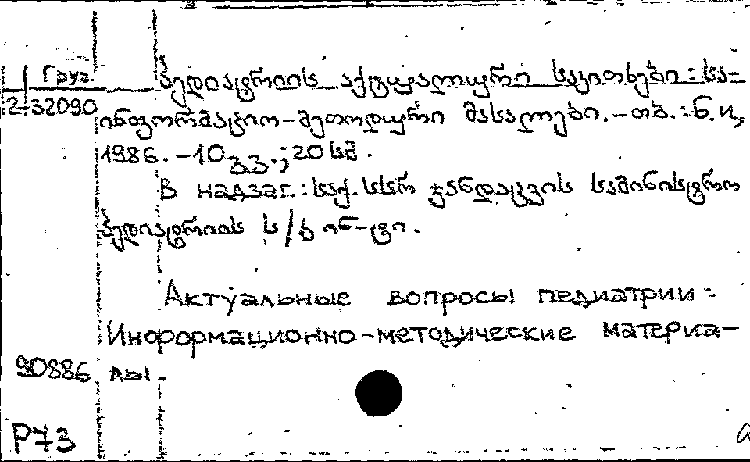 Груз. პედიატრიის აქტუალური საკითხები : სა-
2-32090 ინფორმაციო-მეთოდური მასალები. - თბ. : Б.и,
1986. - 10 გვ. ; 20 სმ.
В надзаг. : საქ. სსრ ჯანდაცვის სამინისტრო
პედიატრიის ს/კ ინ-ტი.
Актуальные вопросы педиатрии :
Информационно-методические материа-
90886 лы.
Р73